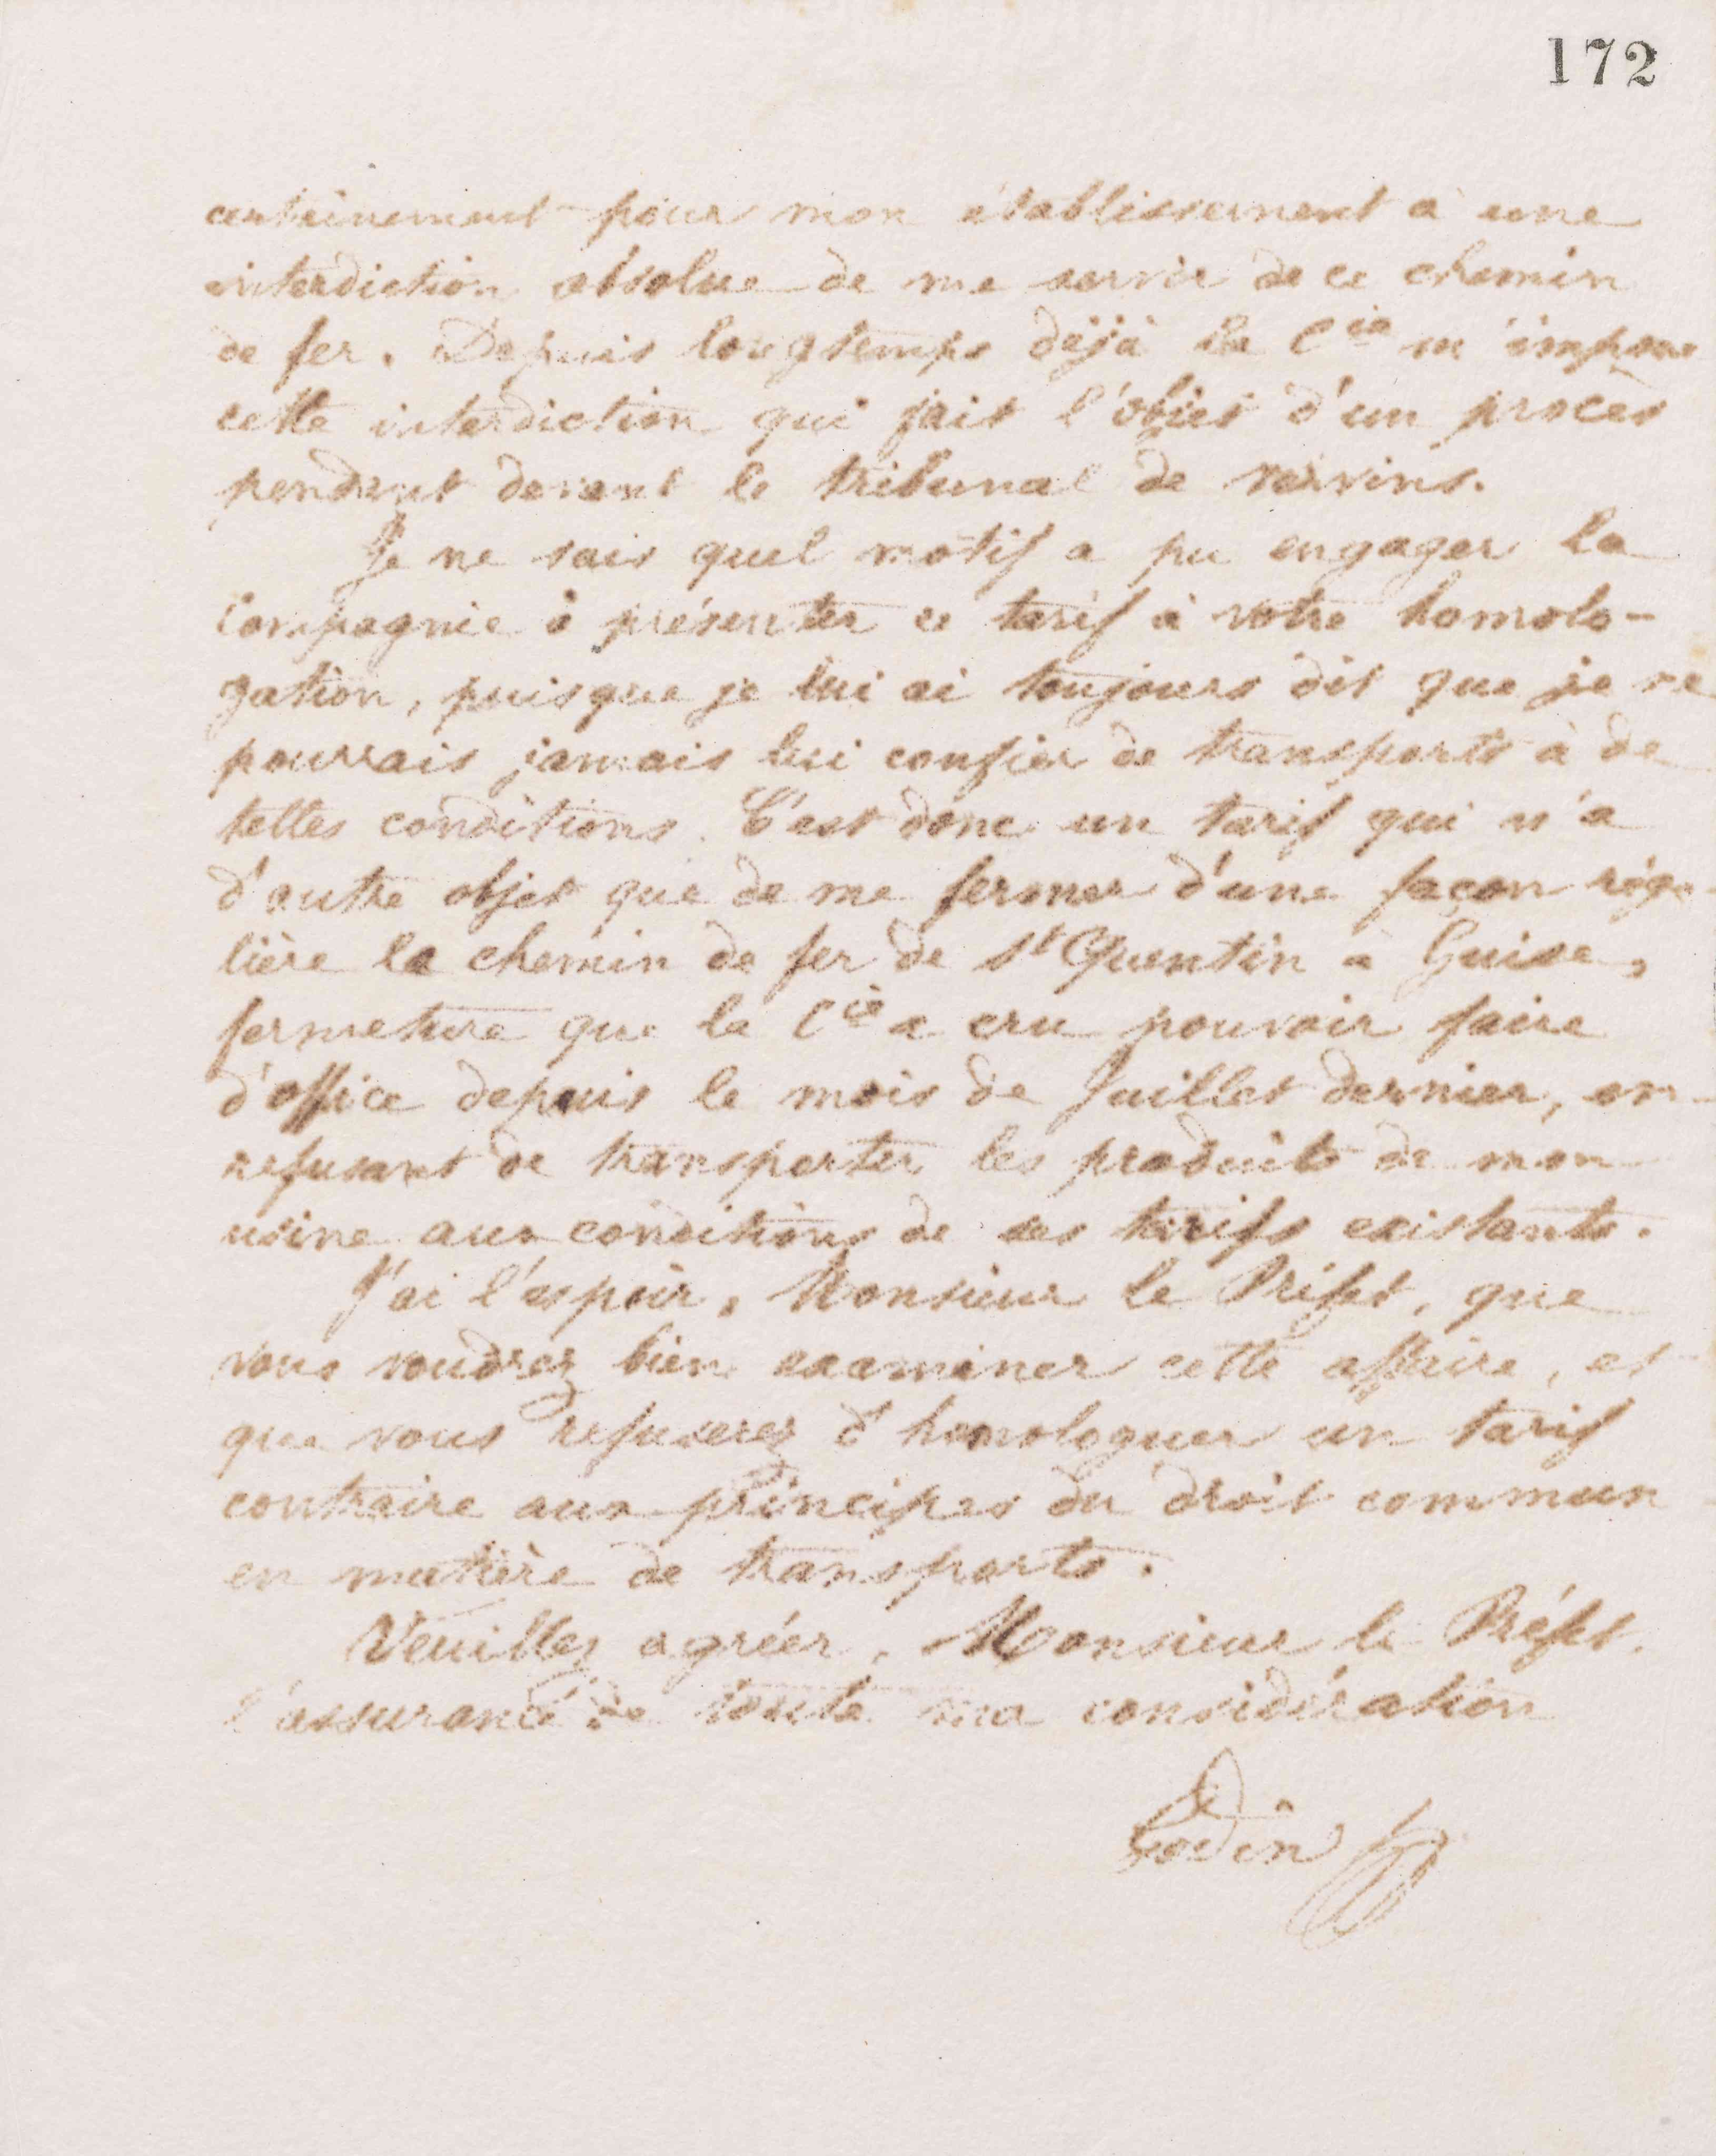 172
certainement pour mon établissement à une
interdiction absolue de me servir de ce chemin
de fer. Depuis longtemps déjà la Cie m'impose
cette interdiction qui fait l'objet d'un procès
pendant devant le tribunal de Vervins.
Je ne sais quel motif a pu engager la
Compagnie à présenter ce tarif à votre homolo-
gation, puisque je lui ai toujours dit que je ne
pourrais jamais lui confier de transports à de
telles conditions. C'est donc un tarif qui n'a
d'autre objet que de me fermer d'une façon régu-
lière le chemin de fer de St Quentin à Guise,
fermeture que la Cie a cru pouvoir faire
d'office depuis le mois de Juillet dernier, en
refusant de transporter les produits de mon
usine aux conditions de ses tarifs existants.
J'ai l'espoir, Monsieur le Préfet, que
vous voudrez bien examiner cette affaire, et
que vous refuserez d'homologuer un tarif
contraire aux principes du droit commun
en matière de transports.
Veuillez agréer, Monsieur le Préfet,
l'assurance de toute ma considération
Godin